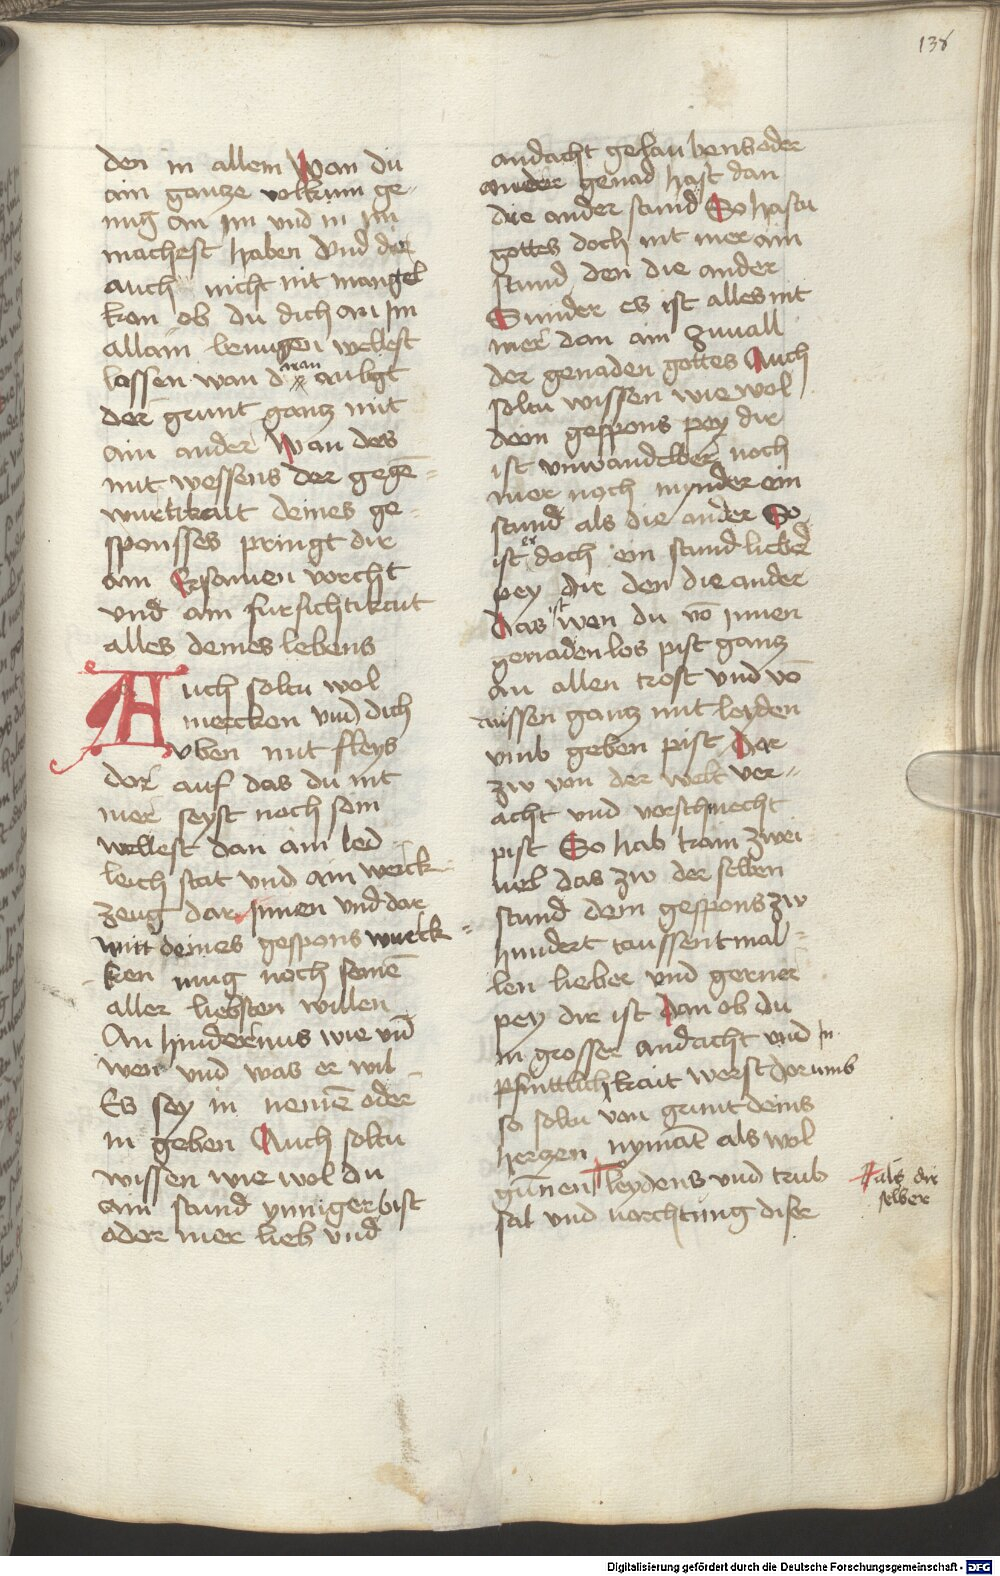 138
den in allem Wan du
ain gantze volkum ge-
nug an Im und in Im
machest haben Und dir
auch nicht nit mangel
kan ob du dich an Im
allain benugen wellest
lassen wan d man an ligt
der grunt gantz mit
ain ander Wan des
mit wessens der gegē-
wurtikait deines ge-
sponsses pringt dir
ain Ersamen vorcht
und ain fursichtikait
alles deines lebens
Auch soltu wol
mercken und dich
vben mit fleys
dor auf das du nit
mer seyst noch sein
wellest dan ain led-
leich stat und ain werck-
zeug dar Innen und dar
mitt deines gespons wurck-
ken mug noch seinē
aller liebsten willen
An hindernus wie vnd
wen und was er wil-
Es sey in nemē oder
in geben Auch soltu
wissen wie wol du
ain stund ynniger bist
oder mer lieb und
andacht gelauben oder
ander genad hast dan
die ander stund So hastu
gottes doch nit mer ain
stund den die ander
Sunder es ist alles nit
mer dan ain zuuall
der genaden gottes Auch
soltu wissen wie wol
dein gespons pey dir
ist unwandelber noch
mer noch mynder ein
stund als die ander So
ist er doch ein stund lieber
pey dir den die ander
Das ist wen du vō Innen
genadenlos pist gantz
an allen trost und vō
aussen gantz mit leyden
umb geben pist Dar
zw von der welt ver-
acht und vorschmecht
pist So hab kain zwei
uel das zw der selben
stund dein gespons zw
hundert taussent mal-
len lieber und gerner
pey dir ist Dan ob du
in grosser andacht und In
pfintlichkait werst Dorumb
so soltu von grunt deins
hertzen nymāt als wol
gūnen leydens und trub
sal und uorchtung diser
als dir
selber
Digitalisierung gefördert durch die Deutsche Forschungsgemeinschaft - DFG